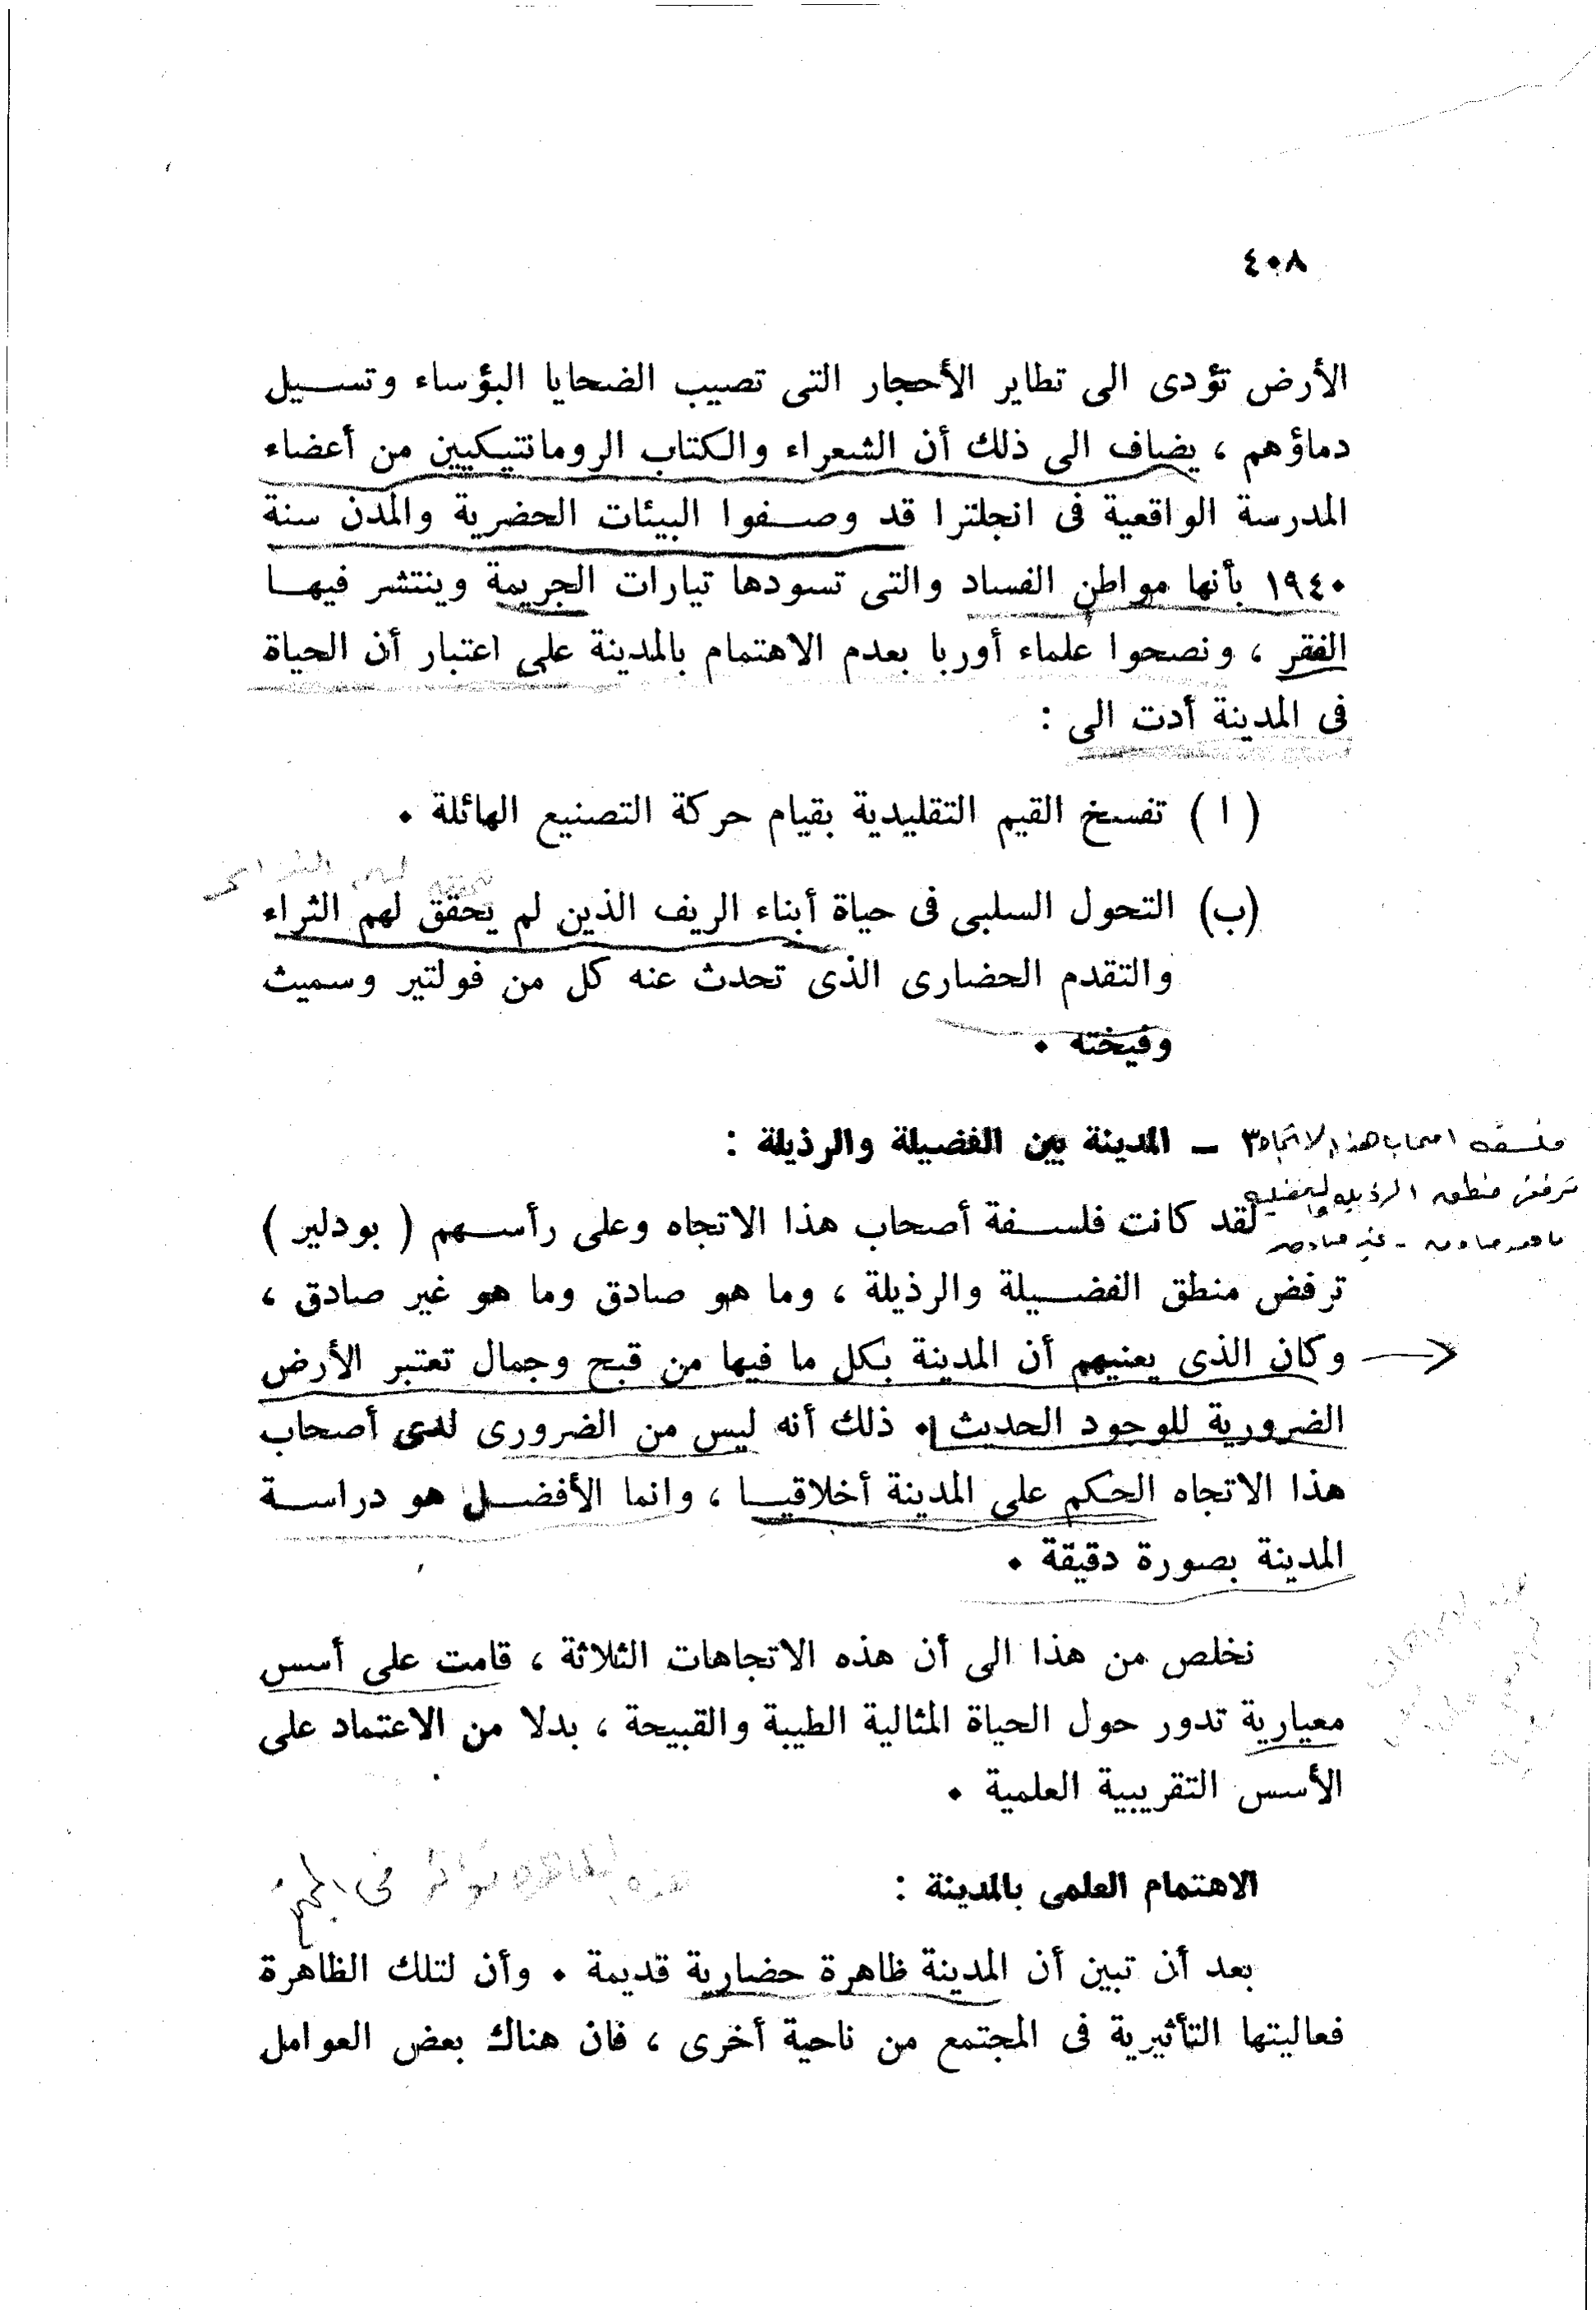 ٤٠٨
الأرض تؤدى الى تطاير الأحجار التى تصيب الضحايا البؤساء وتسـيل
دماؤهم ، يضاف الى ذلك أن الشعراء والكتاب الرومانتيكيين من أعضاء
المدرسة الواقعية فى انجلترا قد وصـفوا البيئات الحضرية والمدن سنة
١٩٤٠ بأنها مواطن الفساد والتى تسودها تيارات الجريمة وينتشر فيهـا
الفقر ، ونصحوا علماء أوربا بعدم الاهتمام بالمدينة على اعتبار أن الحياة
فى المدينة أدت الى :
( ا ) تفسخ القيم التقليدية بقيام حركة التصنيع الهائلة ٠
(ب) التحول السلبى فى حياة أبناء الريف الذين لم يحقق لهم الثراء
والتقدم الحضارى الذى تحدث عنه كل من فولتير وسميث
وفيخته ٠
٣ ـ المدينة بين الفضيلة والرذيلة :
فلسفه اصحاب هذا الاتجاه
ترفض منطق الرذيله
لقد كانت فلسـفة أصحاب هذا الاتجاه وعلى رأسـهم ( بودلير )
ترفض منطق الفضـيلة والرذيلة ، وما هو صادق وما هو غير صادق ،
وكان الذى يعنيهم أن المدينة بكل ما فيها من قبح وجمال تعتبر الأرض
الضرورية للوجود الحديث ٠ ذلك أنه ليس من الضرورى لدى أصحاب
هذا الاتجاه الحكم على المدينة أخلاقيـا ، وانما الأفضـل هو دراسـة
المدينة بصورة دقيقة ٠
نخلص من هذا الى أن هذه الاتجاهات الثلاثة ، قامت على أسس
معيارية تدور حول الحياة المثالية الطيبة والقبيحة ، بدلا من الاعتماد على
الأسس التقريبية العلمية ٠
الاهتمام العلمى بالمدينة :
بعد أن تبين أن المدينة ظاهرة حضارية قديمة ٠ وأن لتلك الظاهرة
فعاليتها التأثيرية فى المجتمع من ناحية أخرى ، فان هناك بعض العوامل